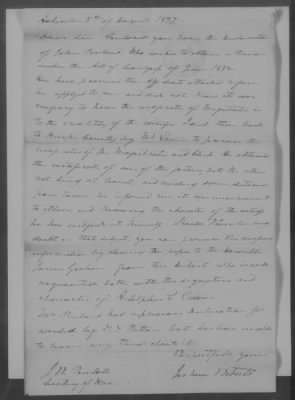 Asheville 5th of August 1837
Dear Sir Enclosed you have the declaration
of John who wishes to obtain a Pension
under the Act of Congress of June 1832.
He had procured the affidavit attached before
he applied to me and did not know it was
necessary to have the certificate of Magistrates as
to the credibility of the witness I sent them back
to County by Mr to procure the
certificates of the Magistrates and Clerk. He obtained
the certificate of one of the Justices but the other
not being at home, and residing some distance
from town he informed me it was inconvenient
to obtain and knowing the character of the witness
he has certified it himself. Should there be any
doubt on that subject you can procure the necessary
information by showing the papers to the Honorable
James Graham from this District who is well
acquainted both with the signature and
character of
Mr had a previous declaration for
warded by but has been unable
to learn any thing about it.
Respectfully yours
Joshua Roberts
J. M.
Secretary of War